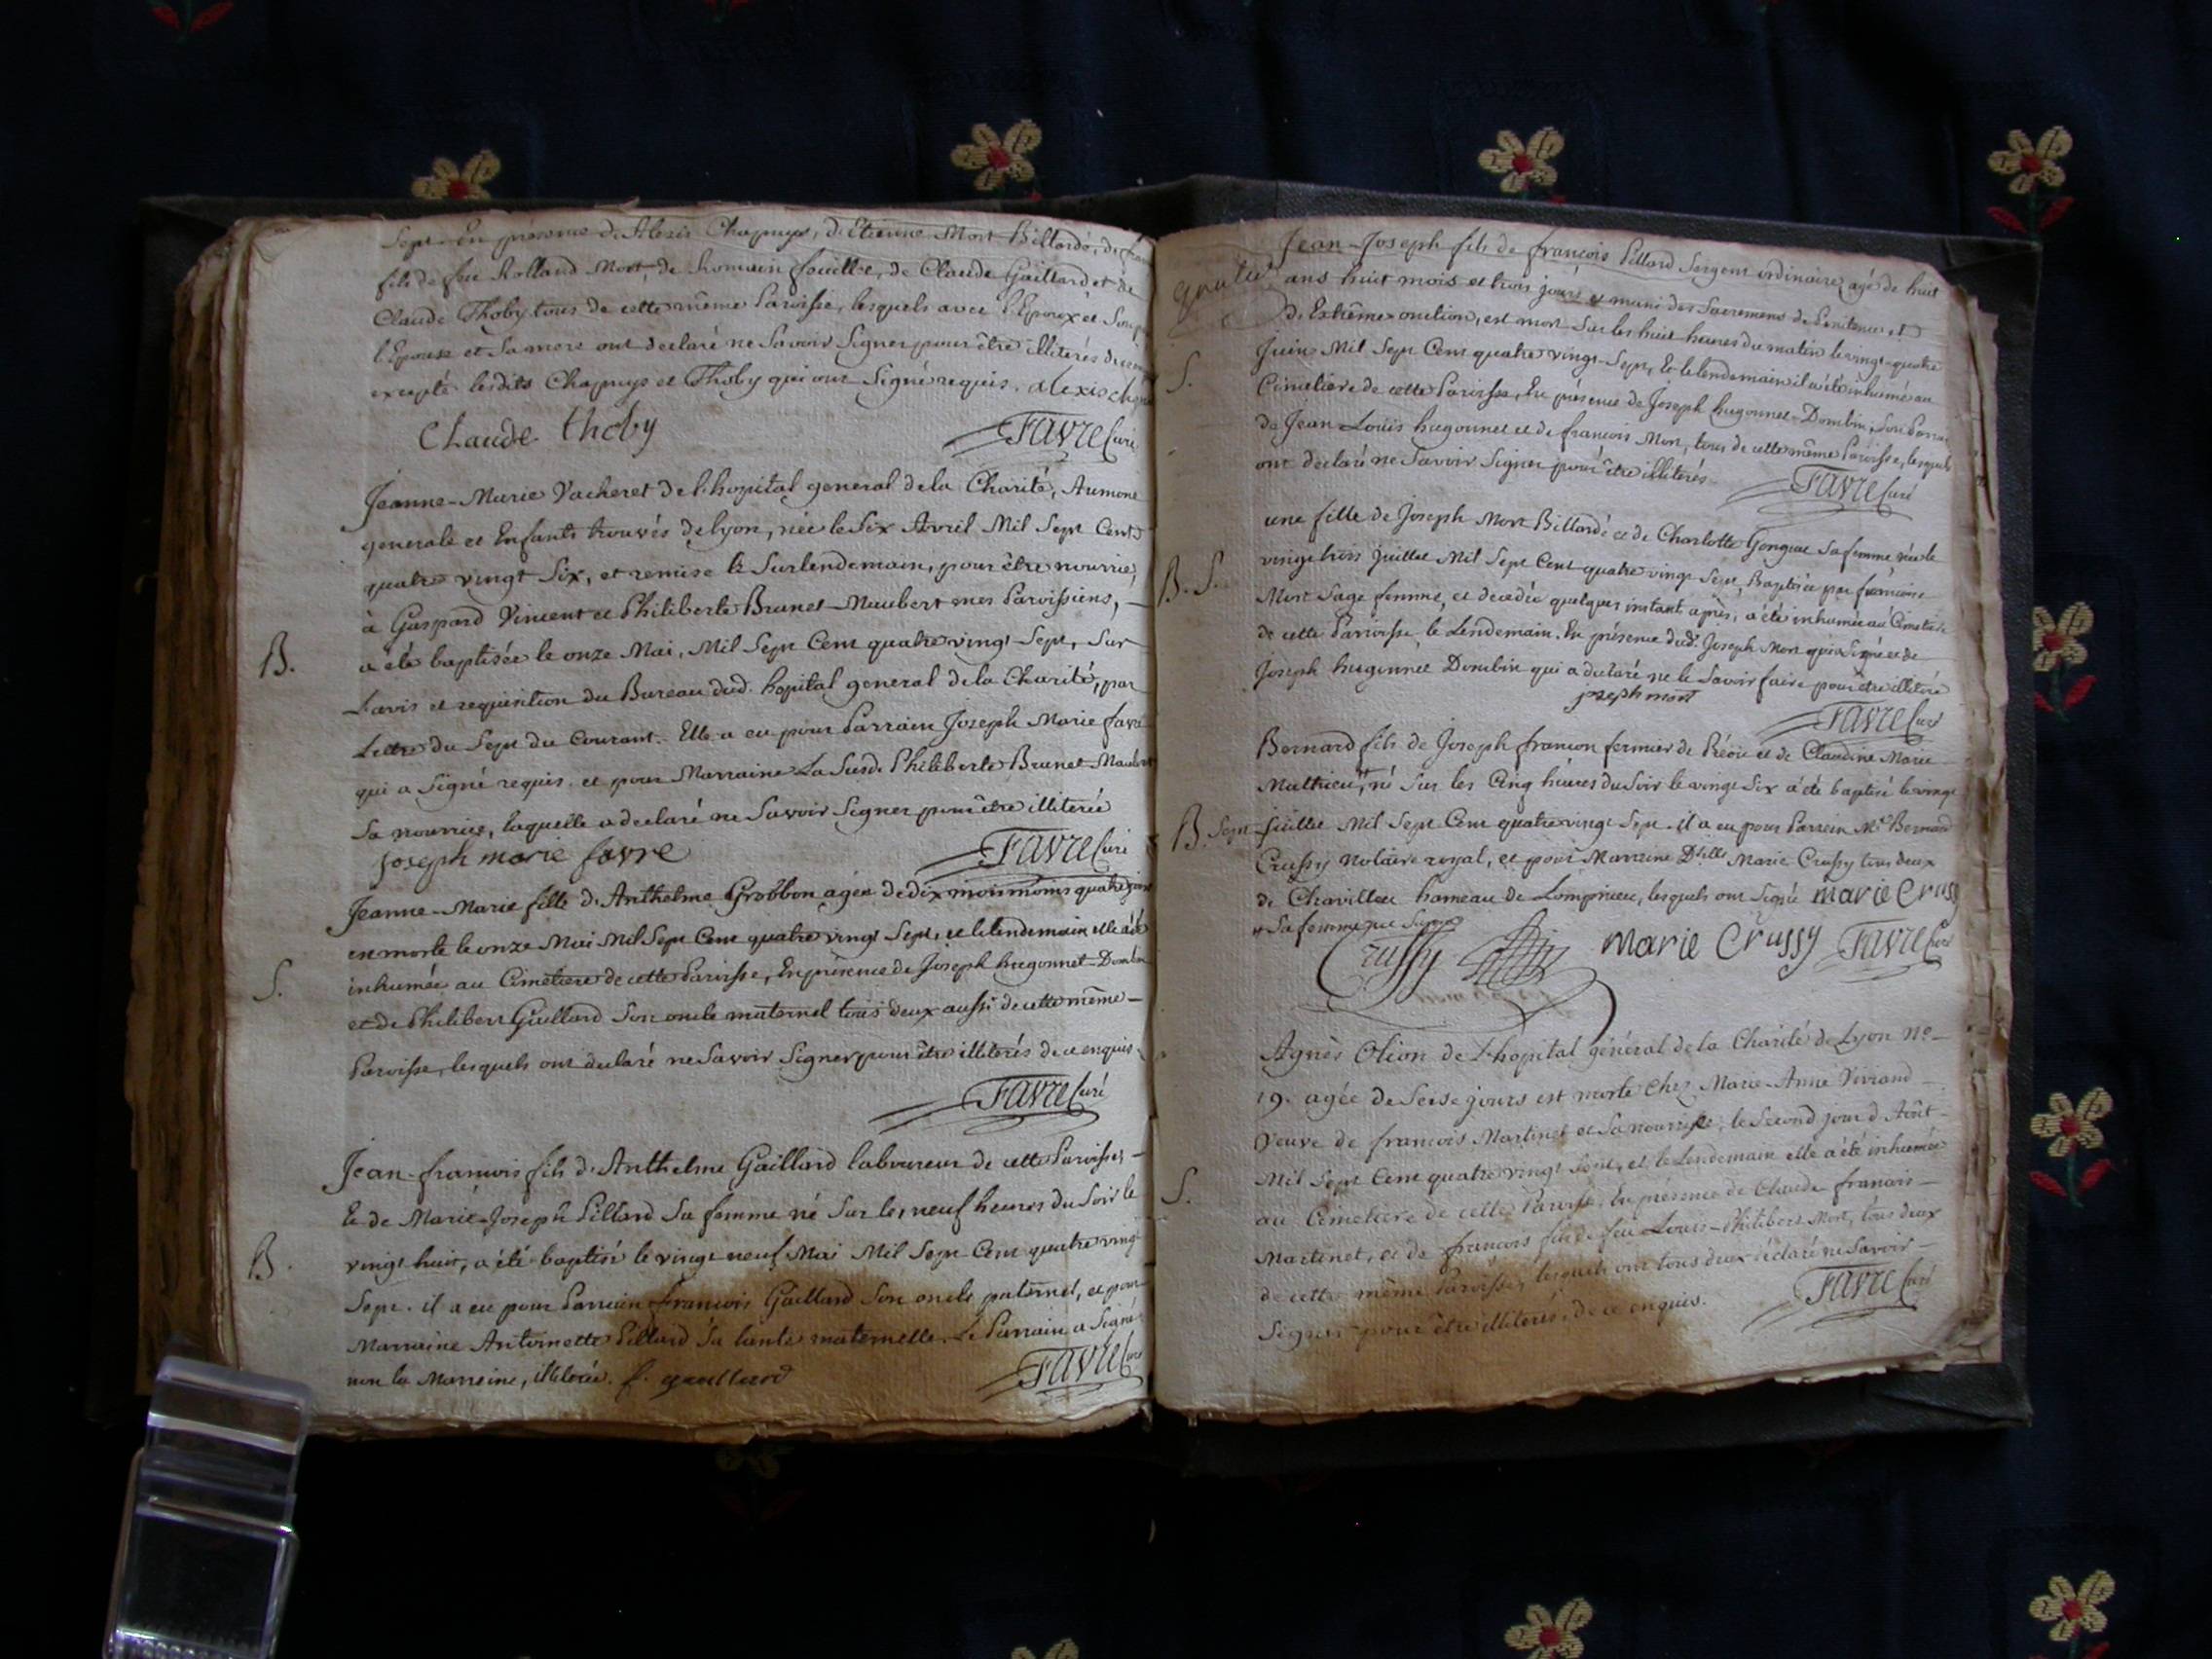 Sept. En présence d'Alexis Chapuys, d'Etienne Mort Billardé, de
fils de feu Rolland Mort, de Romain fouillee, de Claude Gaillard et de
Claude Thoby tous de cette même Paroisse, lesquels avec l'Epoux et
l'Epouse et Sa mere ont declaré ne Savoir Signer pour être illiterés
excepté lesdits Chapuys et Thoby qui ont Signé requis. alexis
Claude thoby
FAVRE Curé
Jeanne-Marie Vacheret de l'hopital general de la Charité, Aumone
generale et Enfants trouvés de lyon, née le Six Avril Mil Sept Cent
quatre vingt Six, et remise le Surlendemain, pour être nourrie,
à Gaspard Vincent et Philiberte Brunet-Maubert mes Paroissiens,
B.
a été baptisée le onze Mai, Mil Sept Cent quatre vingt Sept, Sur
L'avis et requisition du Bureau dud. hopital general de la Charité, par
Lettre du Sept du Courant. Elle a eu pour Parrain Joseph Marie favre
qui a Signé requis. et pour Marraine La Susd. Philiberte Brunet-Maubert
Sa nourrice, laquelle a declaré ne Savoir Signer pour être illiterée
joseph marie favre
FAVRE Curé
Jeanne-Marie fille d'Anthelme Grobbon agée de dix mois moins quatre jours
est morte le onze Mai Mil Sept Cent quatre vingt Sept, et le lendemain elle a été
S.
inhumée au Cimetiere de cette Paroisse, En présence de Joseph hugonnet-Dombin
et de Philibert Gaillard Son oncle maternel tous deux aussi de cette même
Paroisse, lesquels ont declaré ne Savoir Signer pour être illiterés de ce enquis.
FAVRE Curé
Jean-françois fils d'Anthelme Gaillard laboureur de cette Paroisse,
Et de Marie-Joseph Pillard Sa femme né Sur les neuf heures du Soir le
B.
vingt huit, a été baptisé le vingt neuf Mai Mil Sept Cent quatre vingt
Sept. il a eu pour Parrain françois Gaillard Son oncle paternel, et pour
Marraine Antoinette Pillard Sa tante maternelle. Le Parrain a Signé
non la Marraine, illiterée. f. gaillard
FAVRE Curé
Jean-Joseph fils de françois Pillard Sergent ordinaire, agé de huit
ans huit mois et trois jours et muni des Sacremens de Penitence, et
d'Extrême-onction, est mort Sur les huit heures du matin le vingt-quatre
Juin Mil Sept Cent quatre vingt-Sept, Et le lendemain il a été inhumé au
S.
Cimetiere de cette Paroisse, En présence de Joseph hugonnet-Dombin, Son
de Jean-Louis hugonnet et de françois Mort, tous de cette même Paroisse, lesquels
ont declaré ne Savoir Signer pour être illiterés.
FAVRE Curé
une fille de Joseph Mort Billardé et de Charlotte Gonguet Sa femme née le
B. S.
vingt trois juillet Mil Sept Cent quatre vingt Sept, Baptisée par françoise
Mort Sage femme, et decedée quelques instant après, a été inhumée au Cimetiere
de cette Paroisse le Lendemain. En présence dud. Joseph Mort qui a Signé et de
Joseph hugonnet Dombin qui a declaré ne le Savoir faire pour être illiteré
joseph mort
FAVRE Curé
Bernard fils de Joseph françon fermier de Réou et de Claudine Marie
Mathieu, né Sur les Cinq heures du Soir le vingt Six a été baptisé le vingt
B.
Sept juillet Mil Sept Cent quatre vingt Sept. il a eu pour Parrein Me Bernard
Crussy Notaire royal, et pour Marraine Dlle Marie Crussy tous deux
de Chavilleu hameau de Lompnieu, lesquels ont Signé marie Crussy
+ Sa femme
Crussy
marie Crussy
FAVRE Curé
Agnès Olion de L'hopital général de la Charité de Lyon No
19. agée de Seise jours est morte chez Marie-Anne Viviand
veuve de françois Martinet et Sa nourrisse, le Second jour d'Août
Mil Sept Cent quatre vingt Sept, et le Lendemain elle a été inhumée
S.
au Cimetiere de cette Paroisse. En présence de Claude françois
Martinet, et de françois fils de feu Louis-Philibert Mort, tous deux
de cette même Paroisse, lesquels ont tous deux déclaré ne Savoir
Signer pour être illiterés, de ce enquis.
FAVRE Curé